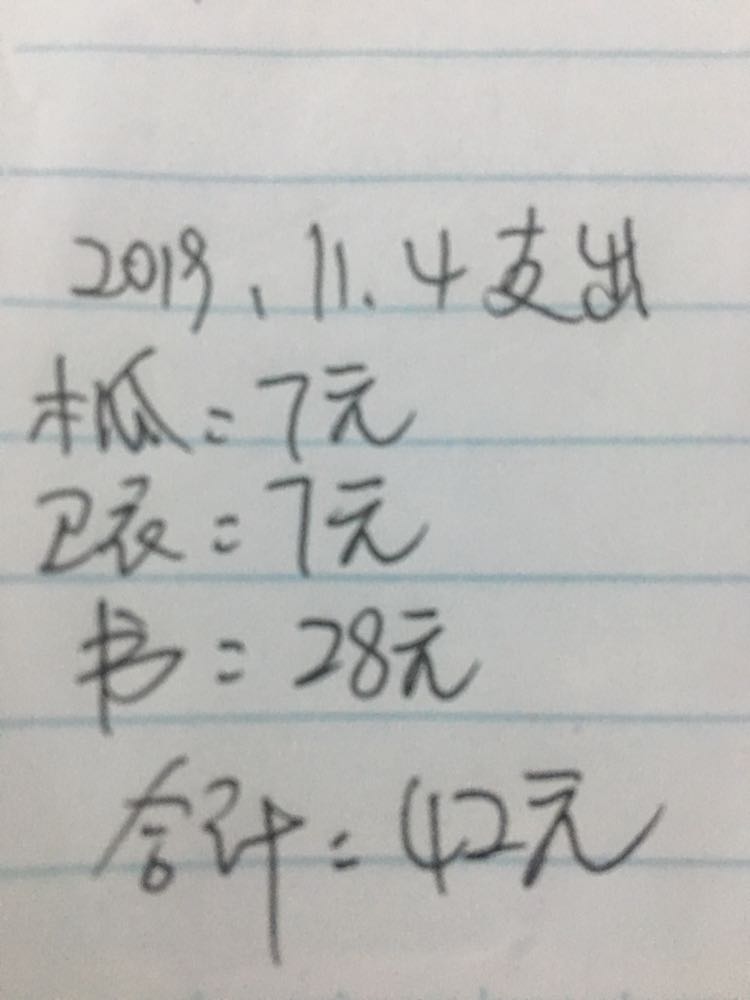 2019、11.4支出
木瓜=7元
卫衣=7元
书=28元
合计=42元